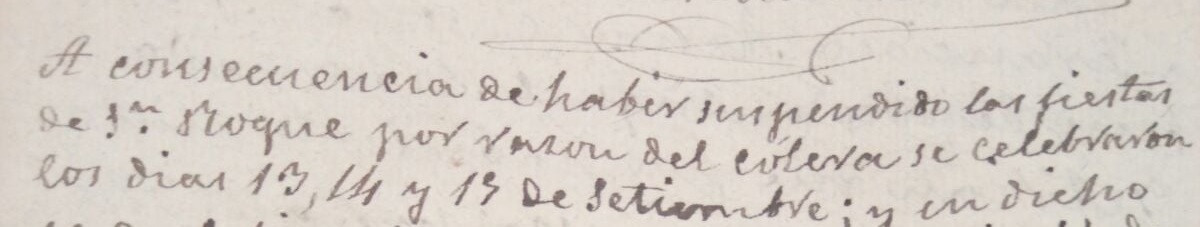 A consecuencia de haber suspendido las fiestas
de Sn. Roque por rason del cólera se celebraron
los dias 13, 14 y 15 de Setiembre; y en dicho